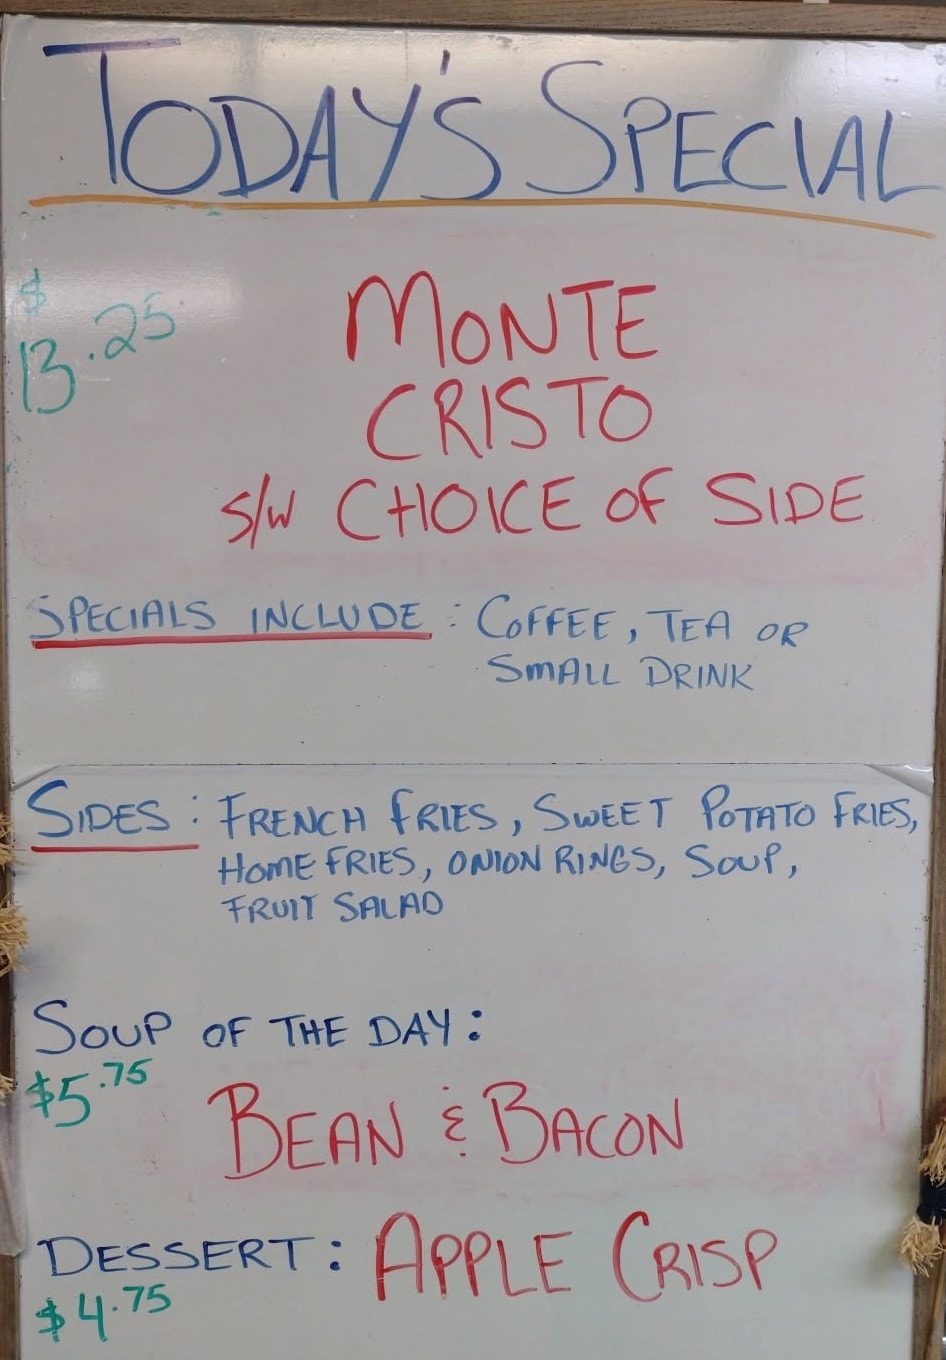 TODAY'S SPECIAL
$13.25
MONTE
CRISTO
S/W CHOICE OF SIDE
SPECIALS INCLUDE : COFFEE, TEA OR
SMALL DRINK
SIDES : FRENCH FRIES, SWEET POTATO FRIES,
HOME FRIES, ONION RINGS, SOUP,
FRUIT SALAD
SOUP OF THE DAY :
$5.75
BEAN & BACON
DESSERT : APPLE CRISP
$4.75